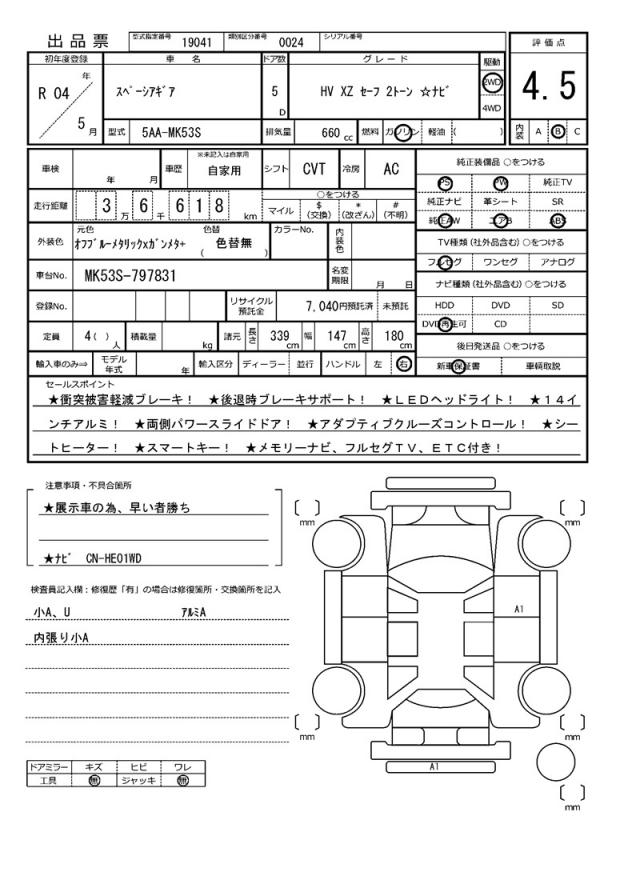 出品票 型式指定番号 19041 類別区分番号 0024 シリアル番号
初年度登録 車名 ドア数 グレード 駆動 評価点
R 04 年 5 月 ｽﾍﾟｰｼｱｷﾞｱ 5 D HV XZ セーフ 2トーン ☆ナビ 2WD 4WD 4.5
型式 5AA-MK53S 排気量 660 cc 燃料 ガソリン 軽油 ( ) 内装 A B C
車検 年 月 車歴 ※未記入は自家用 自家用 シフト CVT 冷房 AC 純正装備品 ○をつける
PS PW 純正TV
走行距離 3 万 6 千 6 1 8 km ○をつける マイル $(交換) *(改ざん) #(不明)
純正ナビ 革シート SR
純正AW エアB ABS
外装色 元色 ｵﾌﾌﾞﾙｰﾒﾀﾘｯｸxｶﾞﾝﾒﾀ+ 色替 ( 色替無 ) カラーNo. 内装色
TV種類 (社外品含む) ○をつける
フルセグ ワンセグ アナログ
車台No. MK53S-797831 名変期限 月 日
ナビ種類 (社外品含む) ○をつける
登録No. リサイクル預託金 7,040円預託済 未預託
HDD DVD SD
DVD再生可 CD
定員 4 ( ) 人 積載量 kg 諸元 長さ 339 cm 幅 147 cm 高さ 180 cm
後日発送品 ○をつける
輸入車のみ⇒ モデル年式 年 輸入区分 ディーラー 並行 ハンドル 左 右
新車保証書 車輌取説
セールスポイント
★衝突被害軽減ブレーキ！ ★後退時ブレーキサポート！ ★ＬＥＤヘッドライト！ ★１４イ
ンチアルミ！ ★両側パワースライドドア！ ★アダプティブクルーズコントロール！ ★シー
トヒーター！ ★スマートキー！ ★メモリーナビ、フルセグＴＶ、ＥＴＣ付き！
注意事項・不具合箇所
★展示車の為、早い者勝ち
★ﾅﾋﾞ CN-HE01WD
検査員記入欄：修復歴「有」の場合は修復箇所・交換箇所を記入
小A、U ｱﾙﾐA
内張り小A
ドアミラー キズ ヒビ ワレ
工具 無 ジャッキ 無
[ ] mm
[ ] mm
A1
[ ] mm
[ ] mm
A1
[ ] mm